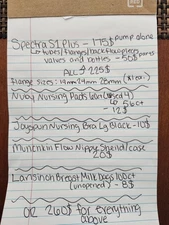 Spectra S1 Plus - 175$ pump alone
↳ tubes/flanges/backflow
valves and bottles - 50$ parts
ALL → 225$
Flange sizes: 19mm 24mm 28mm
Nuby Nursing Pads 60ct (used 4)
↳ 56ct
12$
Nursing Bra Lg Black - 10$
Munchkin Flow Nipple Shield/case
20$
Lansinoh Breast Milk bags 100ct
(unopened) - 8$
OR 260$ for everything
above